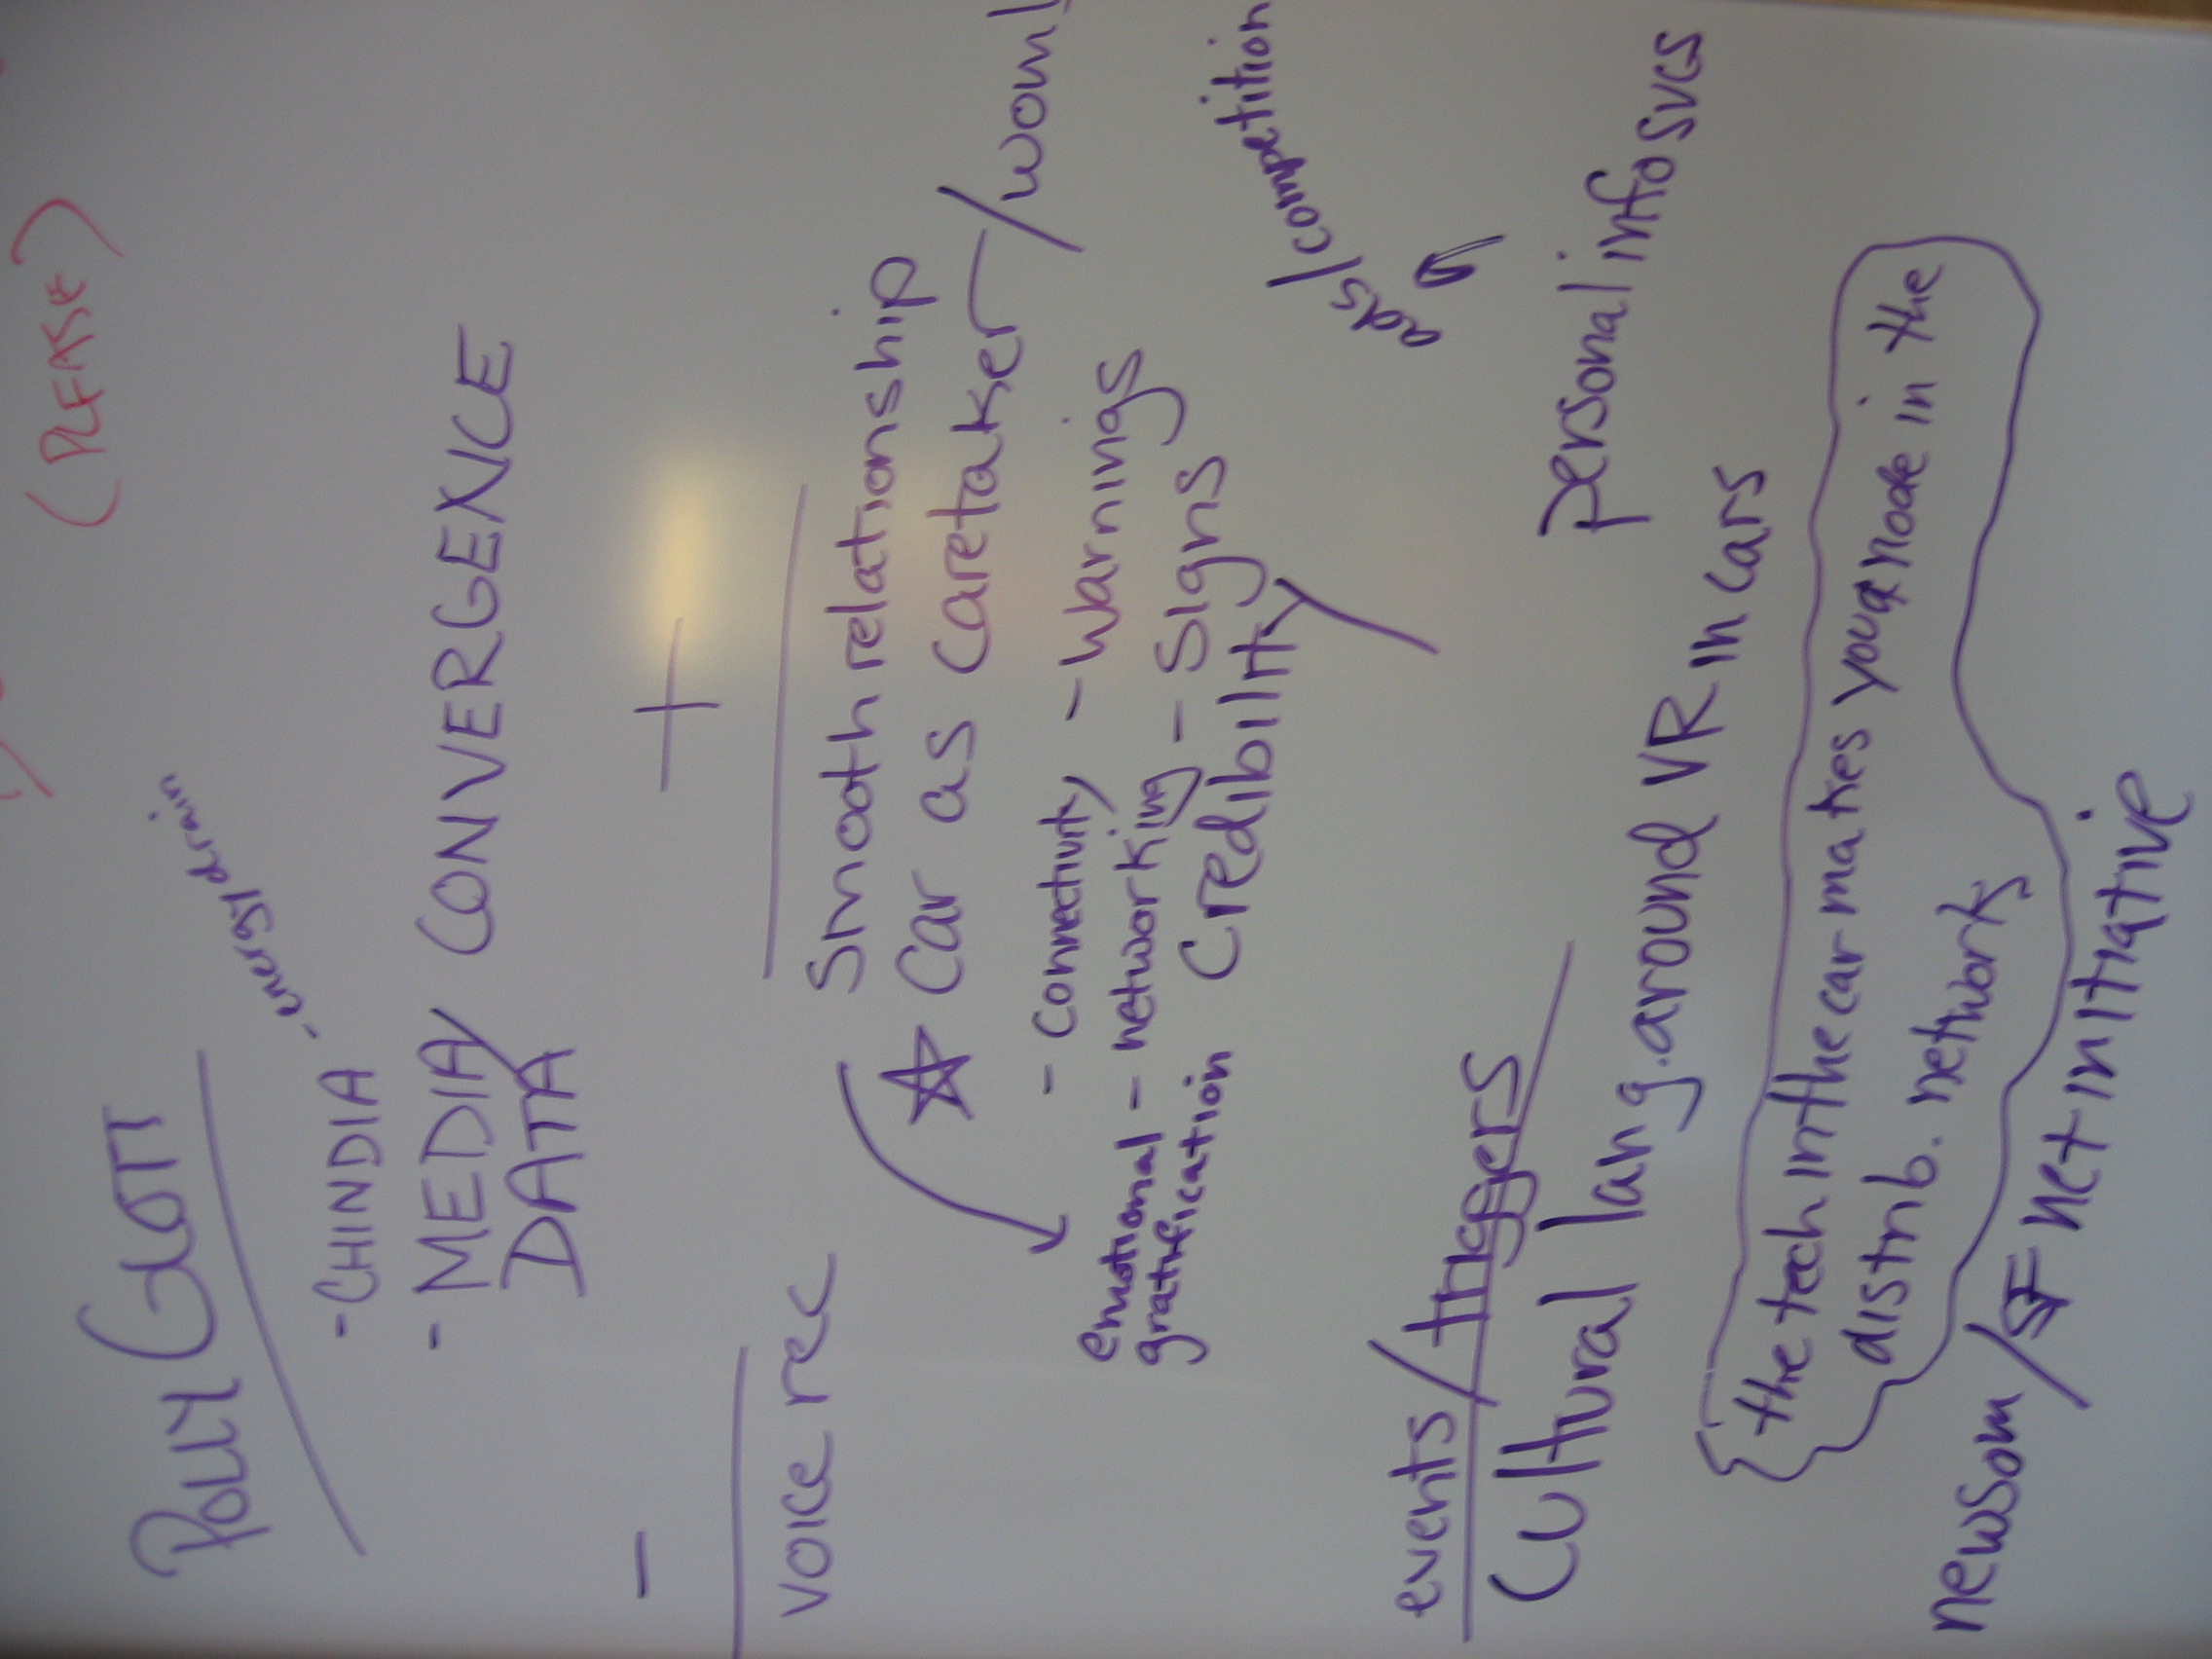 (PLEASE)
POLLY GLOTT
- CHINDIA - energy drain
- MEDIA CONVERGENCE
DATA
- +
voice rec
Smooth relationship
☆ Car as Caretaker / womb
- Connectivity - Warnings
emotional - networking - Signs
gratification Credibility
ads/competition
events/triggers
personal info svcs
Cultural lang. around VR in cars
the tech in the car makes you a node in the
distrib. network
newsom / SF net initiative